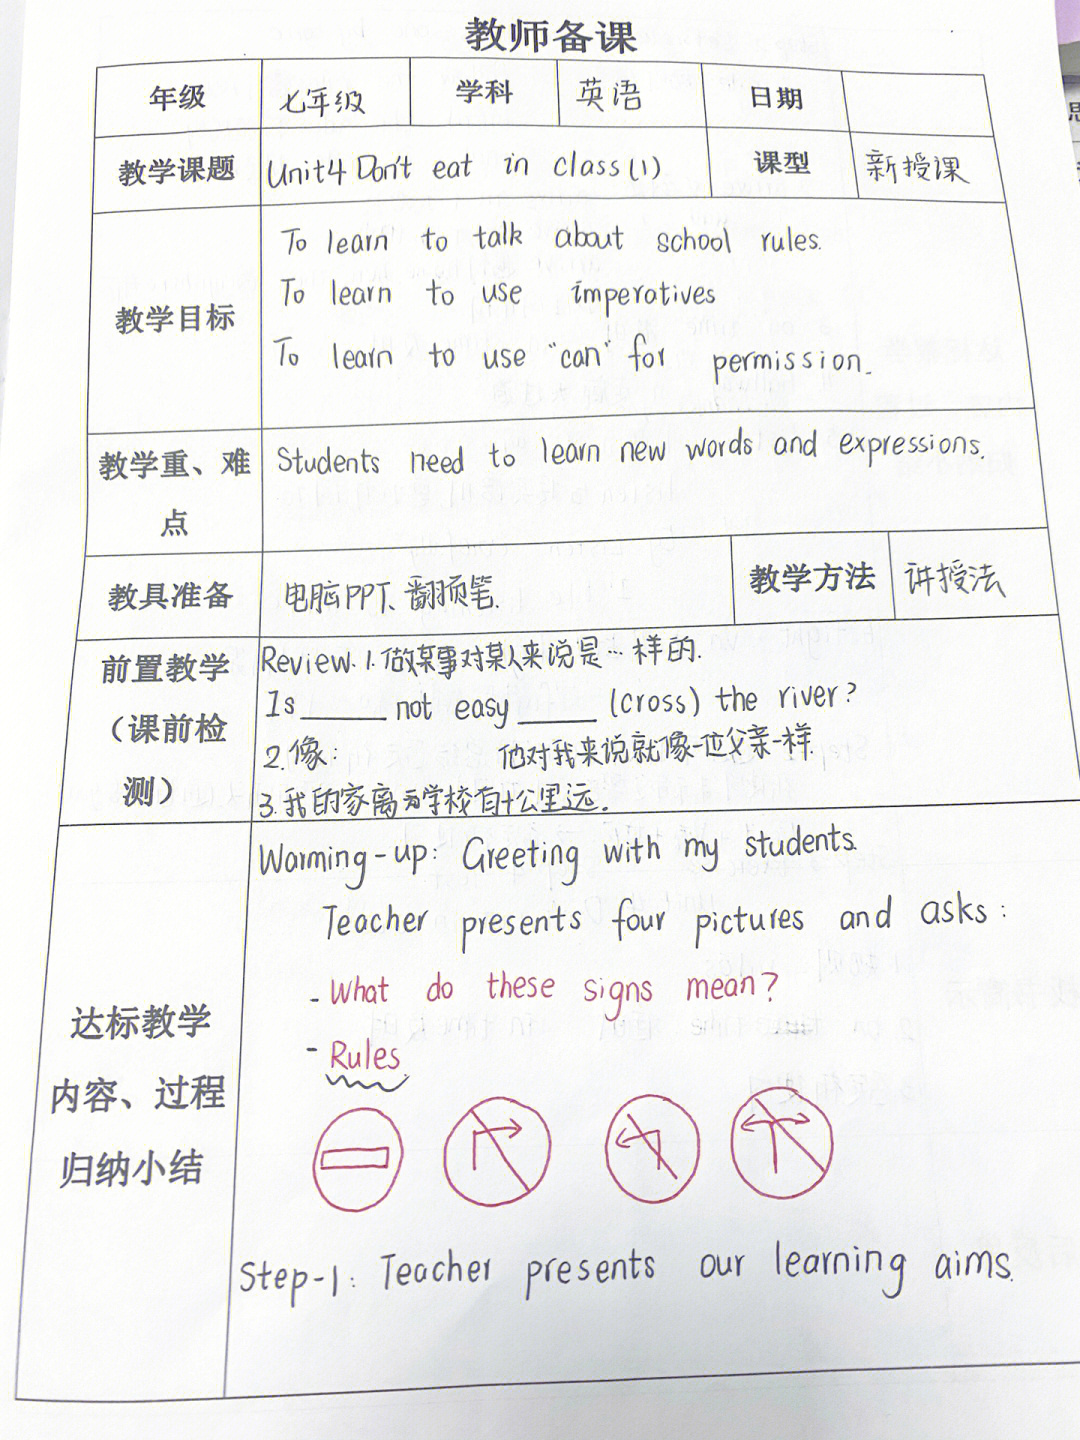 教师备课
年级 七年级 学科 英语 日期
教学课题 Unit4 Don't eat in class(1) 课型 新授课
教学目标
To learn to talk about school rules.
To learn to use imperatives
To learn to use "can" for permission.
教学重、难点
Students need to learn new words and expressions.
教具准备 电脑PPT、翻页笔. 教学方法 讲授法
前置教学（课前检测）
Review. 1. 做某事对某人来说是…样的.
Is ______ not easy ______ (cross) the river?
2. 像: 他对我来说就像一位父亲一样.
3. 我的家离学校有十公里远.
达标教学内容、过程归纳小结
Warming-up: Greeting with my students.
Teacher presents four pictures and asks:
- What do these signs mean?
- Rules
Step-1: Teacher presents our learning aims.